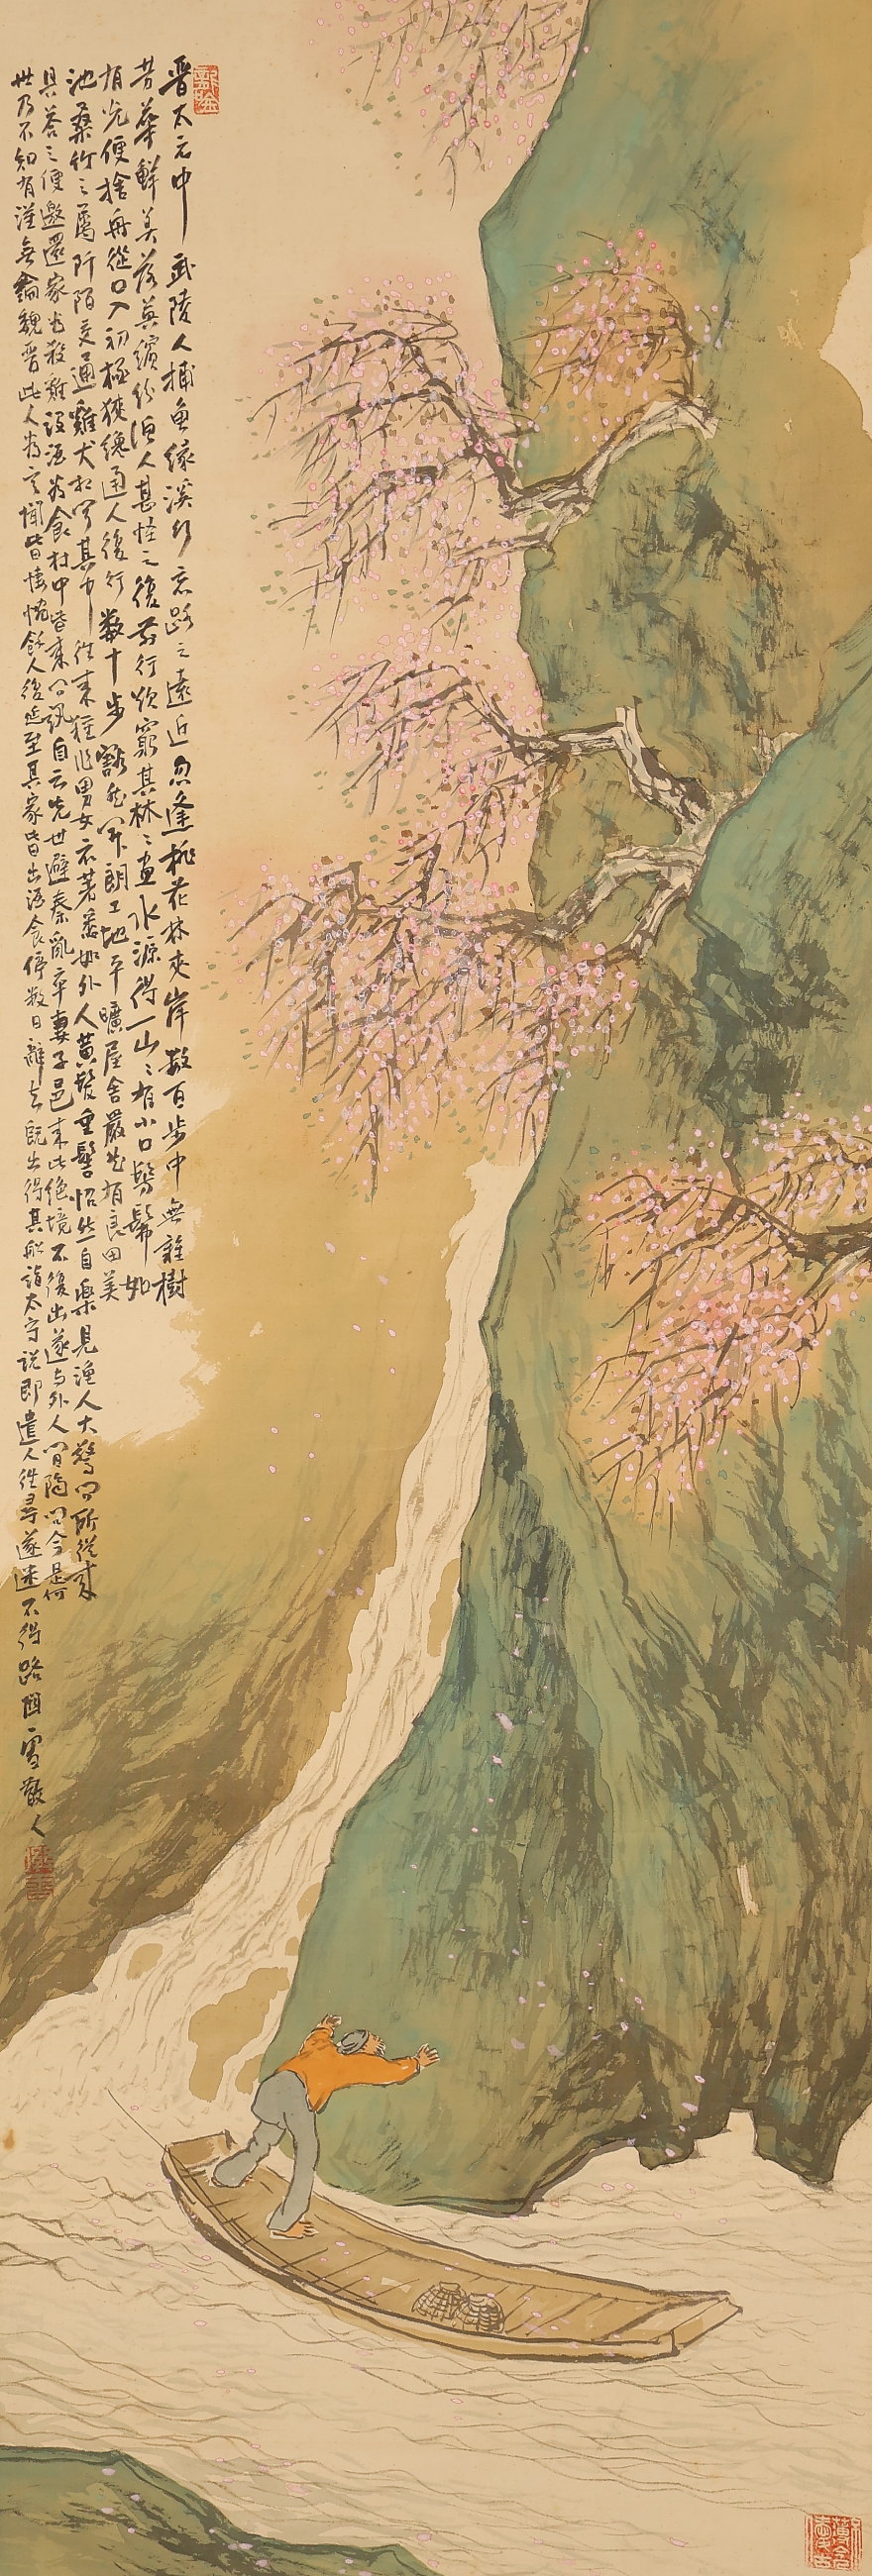 晋太元中武陵人捕魚緣溪行忘路之遠近忽逢桃花林夾岸數百步中無雜樹
芳華鮮美落英繽紛漁人甚怪之復前行欲窮其林〻盡水源得一山〻有小口髣髴如
有光便捨舟從口入初極狹纔通人復行數十步豁然開朗土地平曠屋舍嚴然有良田美
池桑竹之屬阡陌交通雞犬相聞其中往來種作男女衣著悉如外人黃髮垂髫怡然自樂見漁人大驚問所從來
具答之便邀還家為殺雞設酒為食村中皆來問訊自云先世避秦亂率妻子邑來此絶境不復出遂与外人間隔問今是何
世乃不知有漢無論魏晋此人為言聞皆悽惋餘人復延至其家皆出酒食停數日辭去既出得其船詣太守説即遣人往尋遂迷不得路 雪散人